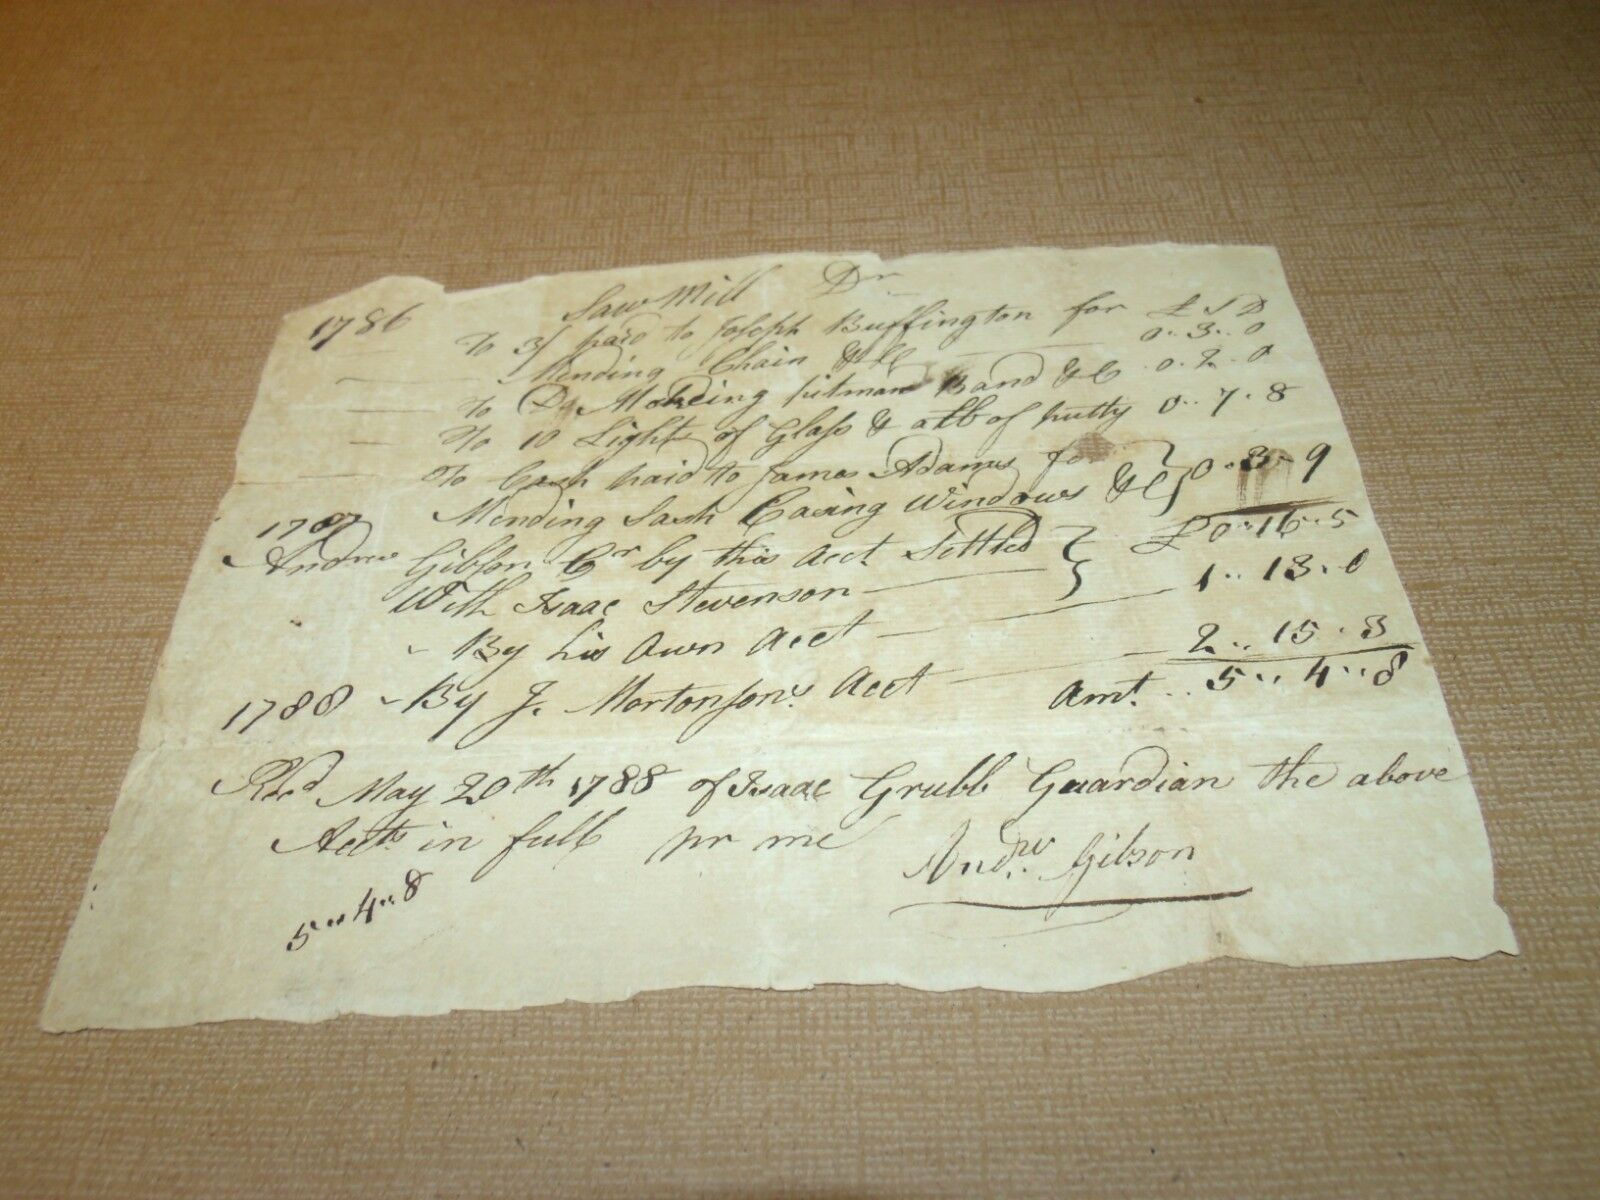 Saw Mill Dr
1786 To 3/ paid to Joseph Buffington for £ S D
Mending Chain &C 0.. 3.. 0
To Do Making pitman Band &C 0.. 2.. 0
To 10 Lights of Glass & a lb of putty 0.. 7.. 8
To Cash paid to James Adams for
Mending Sash Casing Windows &C 0.. 3.. 9
1787 £ 0.. 16.. 5
Andrew Gibson Cr by this Acct Settled
With Isaac Stevenson 1.. 13.. 0
By his Own Acct
2.. 15.. 3
1788 By J. Mortonson's Acct
Amt. 5.. 4.. 8
Recd May 20th 1788 of Isaac Grubb Guardian the above
Accts in full pr me
Andw. Gibson
5.. 4.. 8